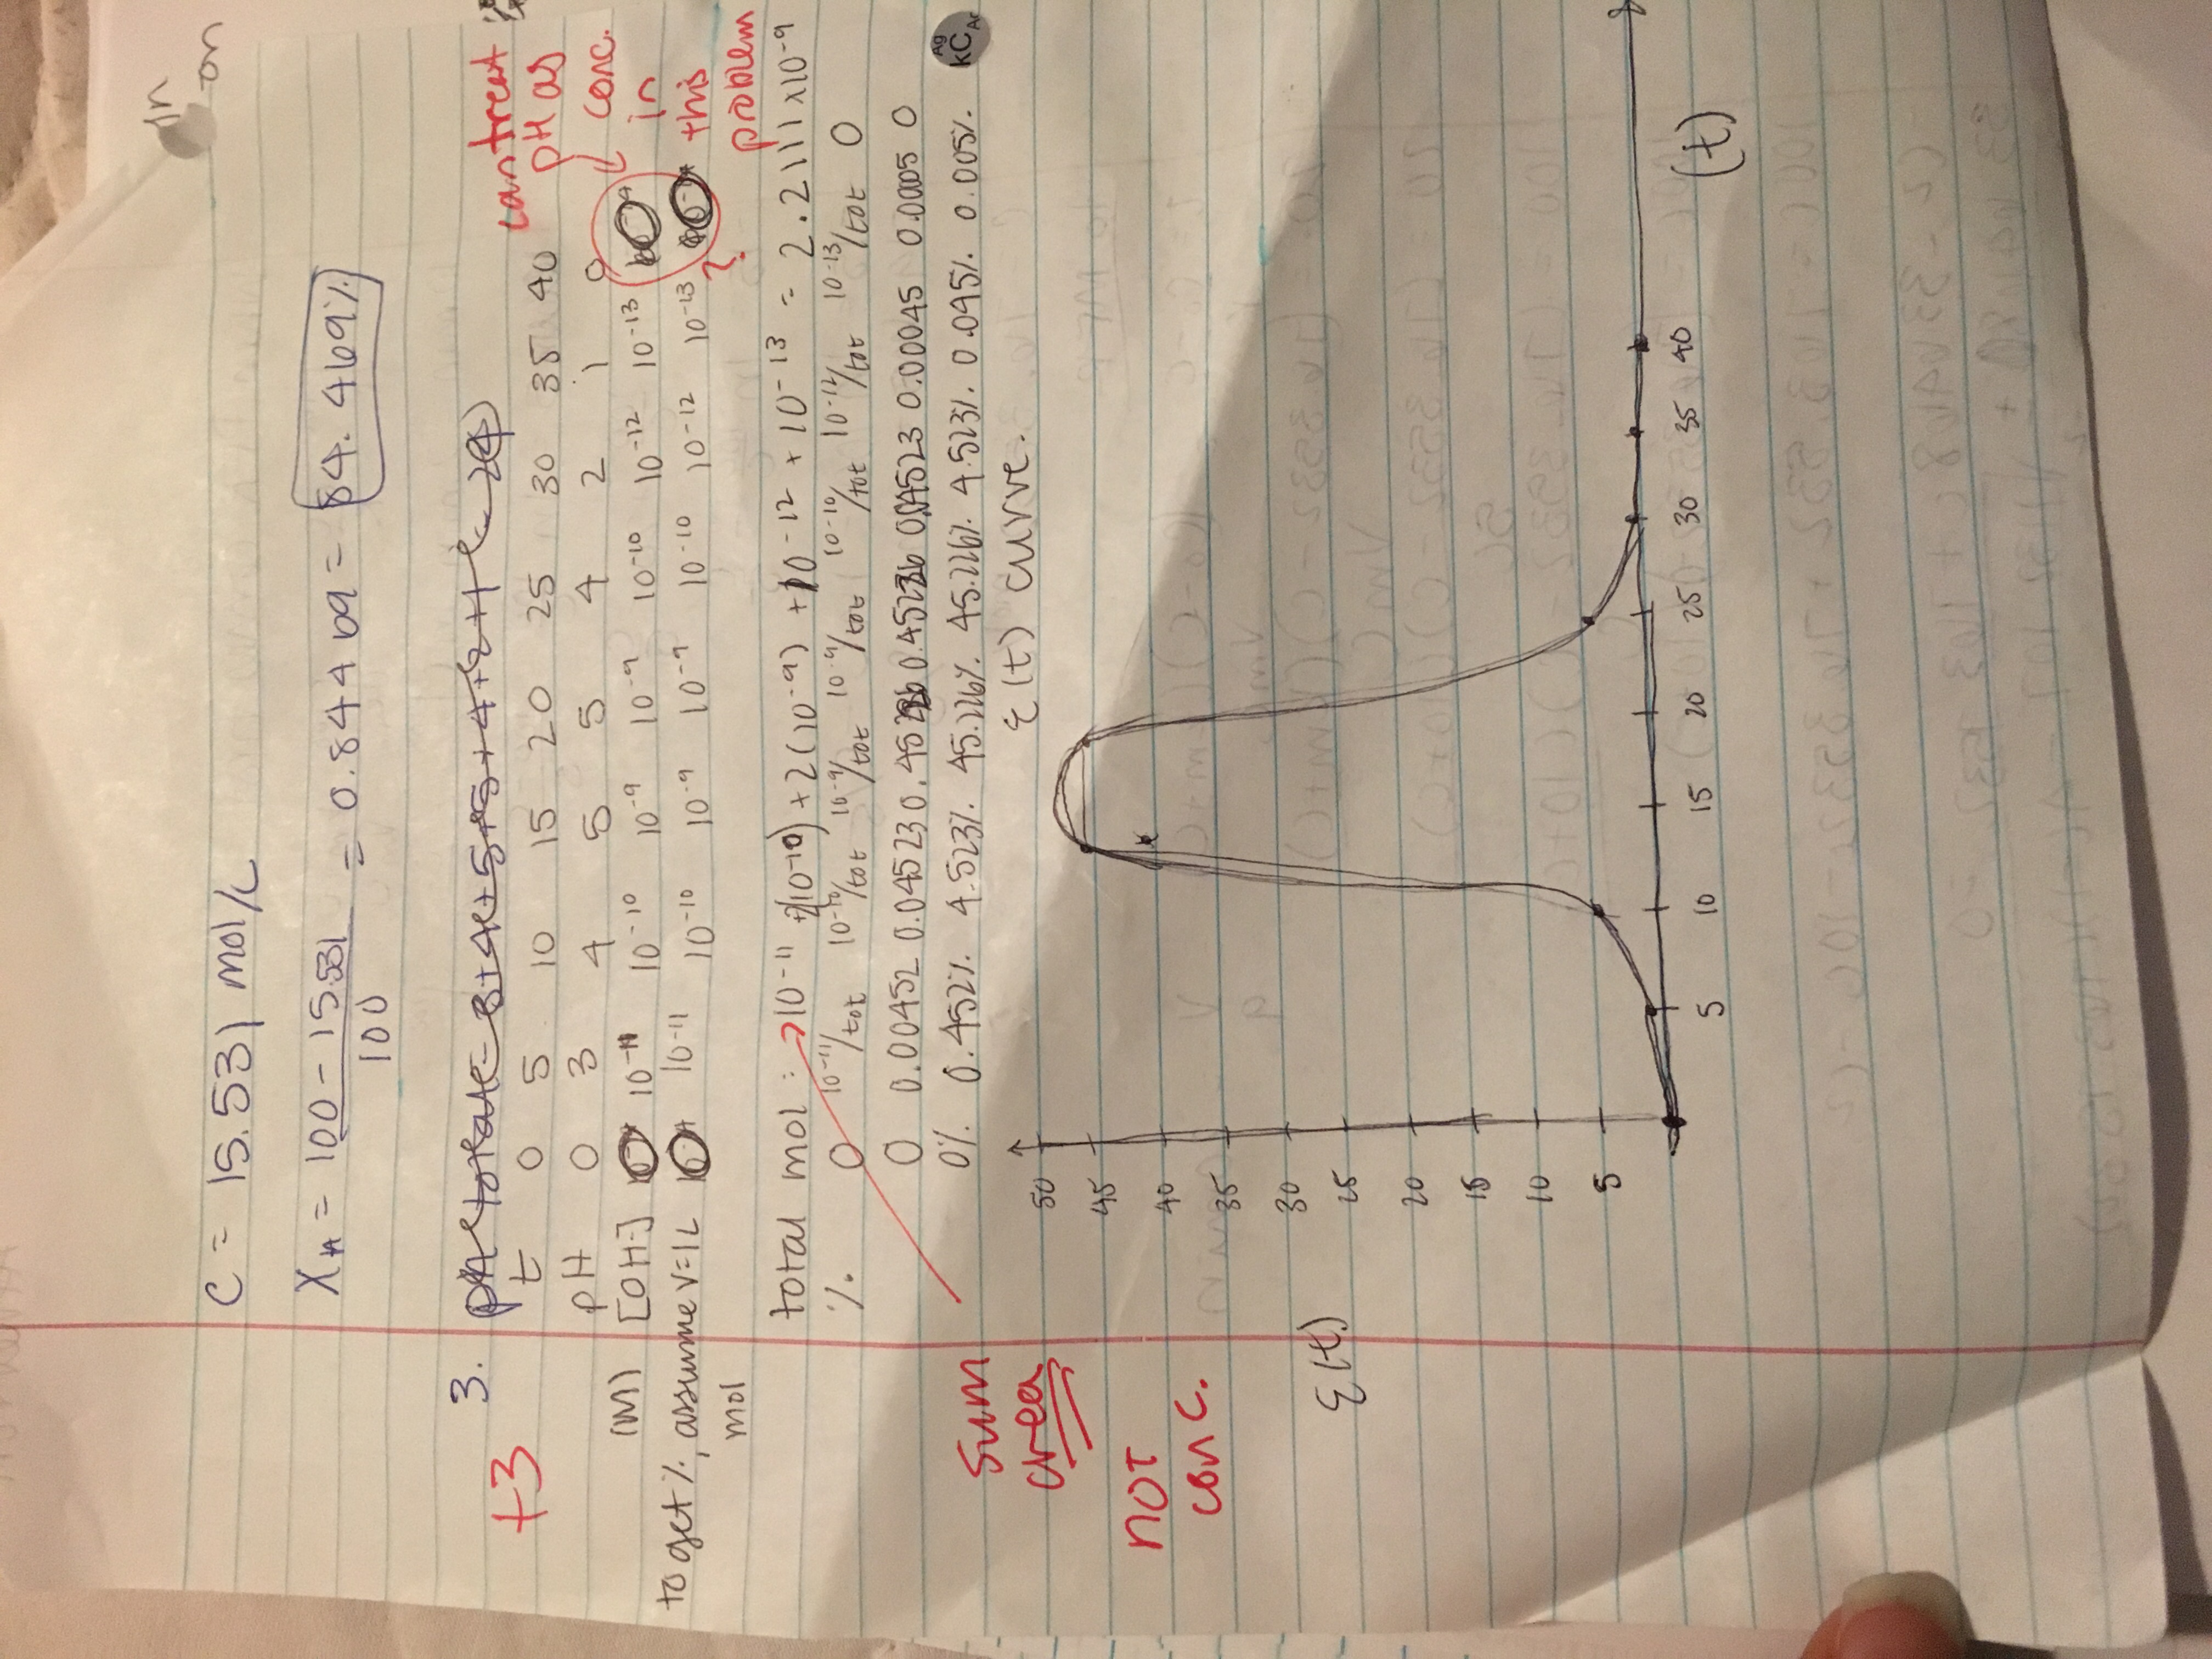 in
on
C = 15.531 mol/L
XA = 100 - 15.531 / 100 = 0.84469 = 84.469%
3.
+3
t 0 5 10 15 20 25 30 35 40
pH 0 3 4 5 5 4 2 1 0
can treat pH as conc. in this problem
(M) [OH-] 10⁻¹¹ 10⁻¹⁰ 10⁻⁹ 10⁻⁹ 10⁻¹⁰ 10⁻¹² 10⁻¹³
to get %, assume V=1L 10⁻¹¹ 10⁻¹⁰ 10⁻⁹ 10⁻⁹ 10⁻¹⁰ 10⁻¹² 10⁻¹³
mol
?
total mol: 10⁻¹¹ + 2(10⁻¹⁰) + 2(10⁻⁹) + 10⁻¹² + 10⁻¹³ = 2.2111x10⁻⁹
% 0 10⁻¹¹/tot 10⁻¹⁰/tot 10⁻⁹/tot 10⁻⁹/tot 10⁻¹⁰/tot 10⁻¹²/tot 10⁻¹³/tot 0
0 0.00452 0.04523 0.45226 0.45226 0.04523 0.00045 0.00005 0
0% 0.452% 4.523% 45.226% 45.226% 4.523% 0.045% 0.005%
Ag
kC Ar
sum
area
not
conc.
ε(t) curve.
50
45
40
35
30
25
20
15
10
5
ε(t)
5 10 15 20 25 30 35 40
(t)